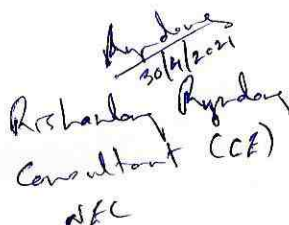 30/4/2021
Rishanlang Ryndong
Consultant (CE)
NEC